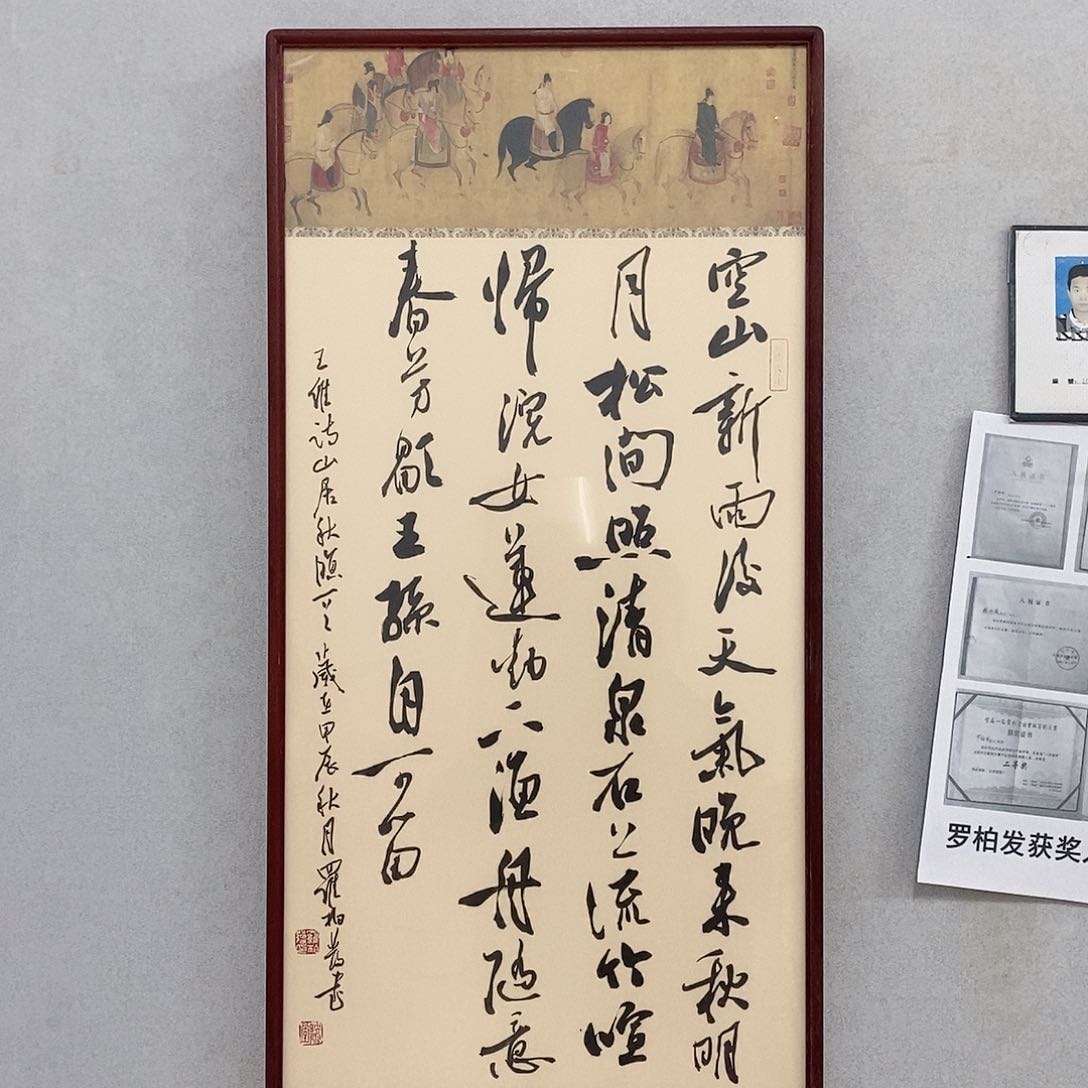 空山新雨後天氣晚来秋明
月松間照清泉石上流竹喧
歸浣女蓮動下漁舟隨意
春芳歇王孫自可留
王維诗山居秋暝 歲在甲辰秋月羅柏發书
入展证书
入展证书
二等奖
罗柏发获奖